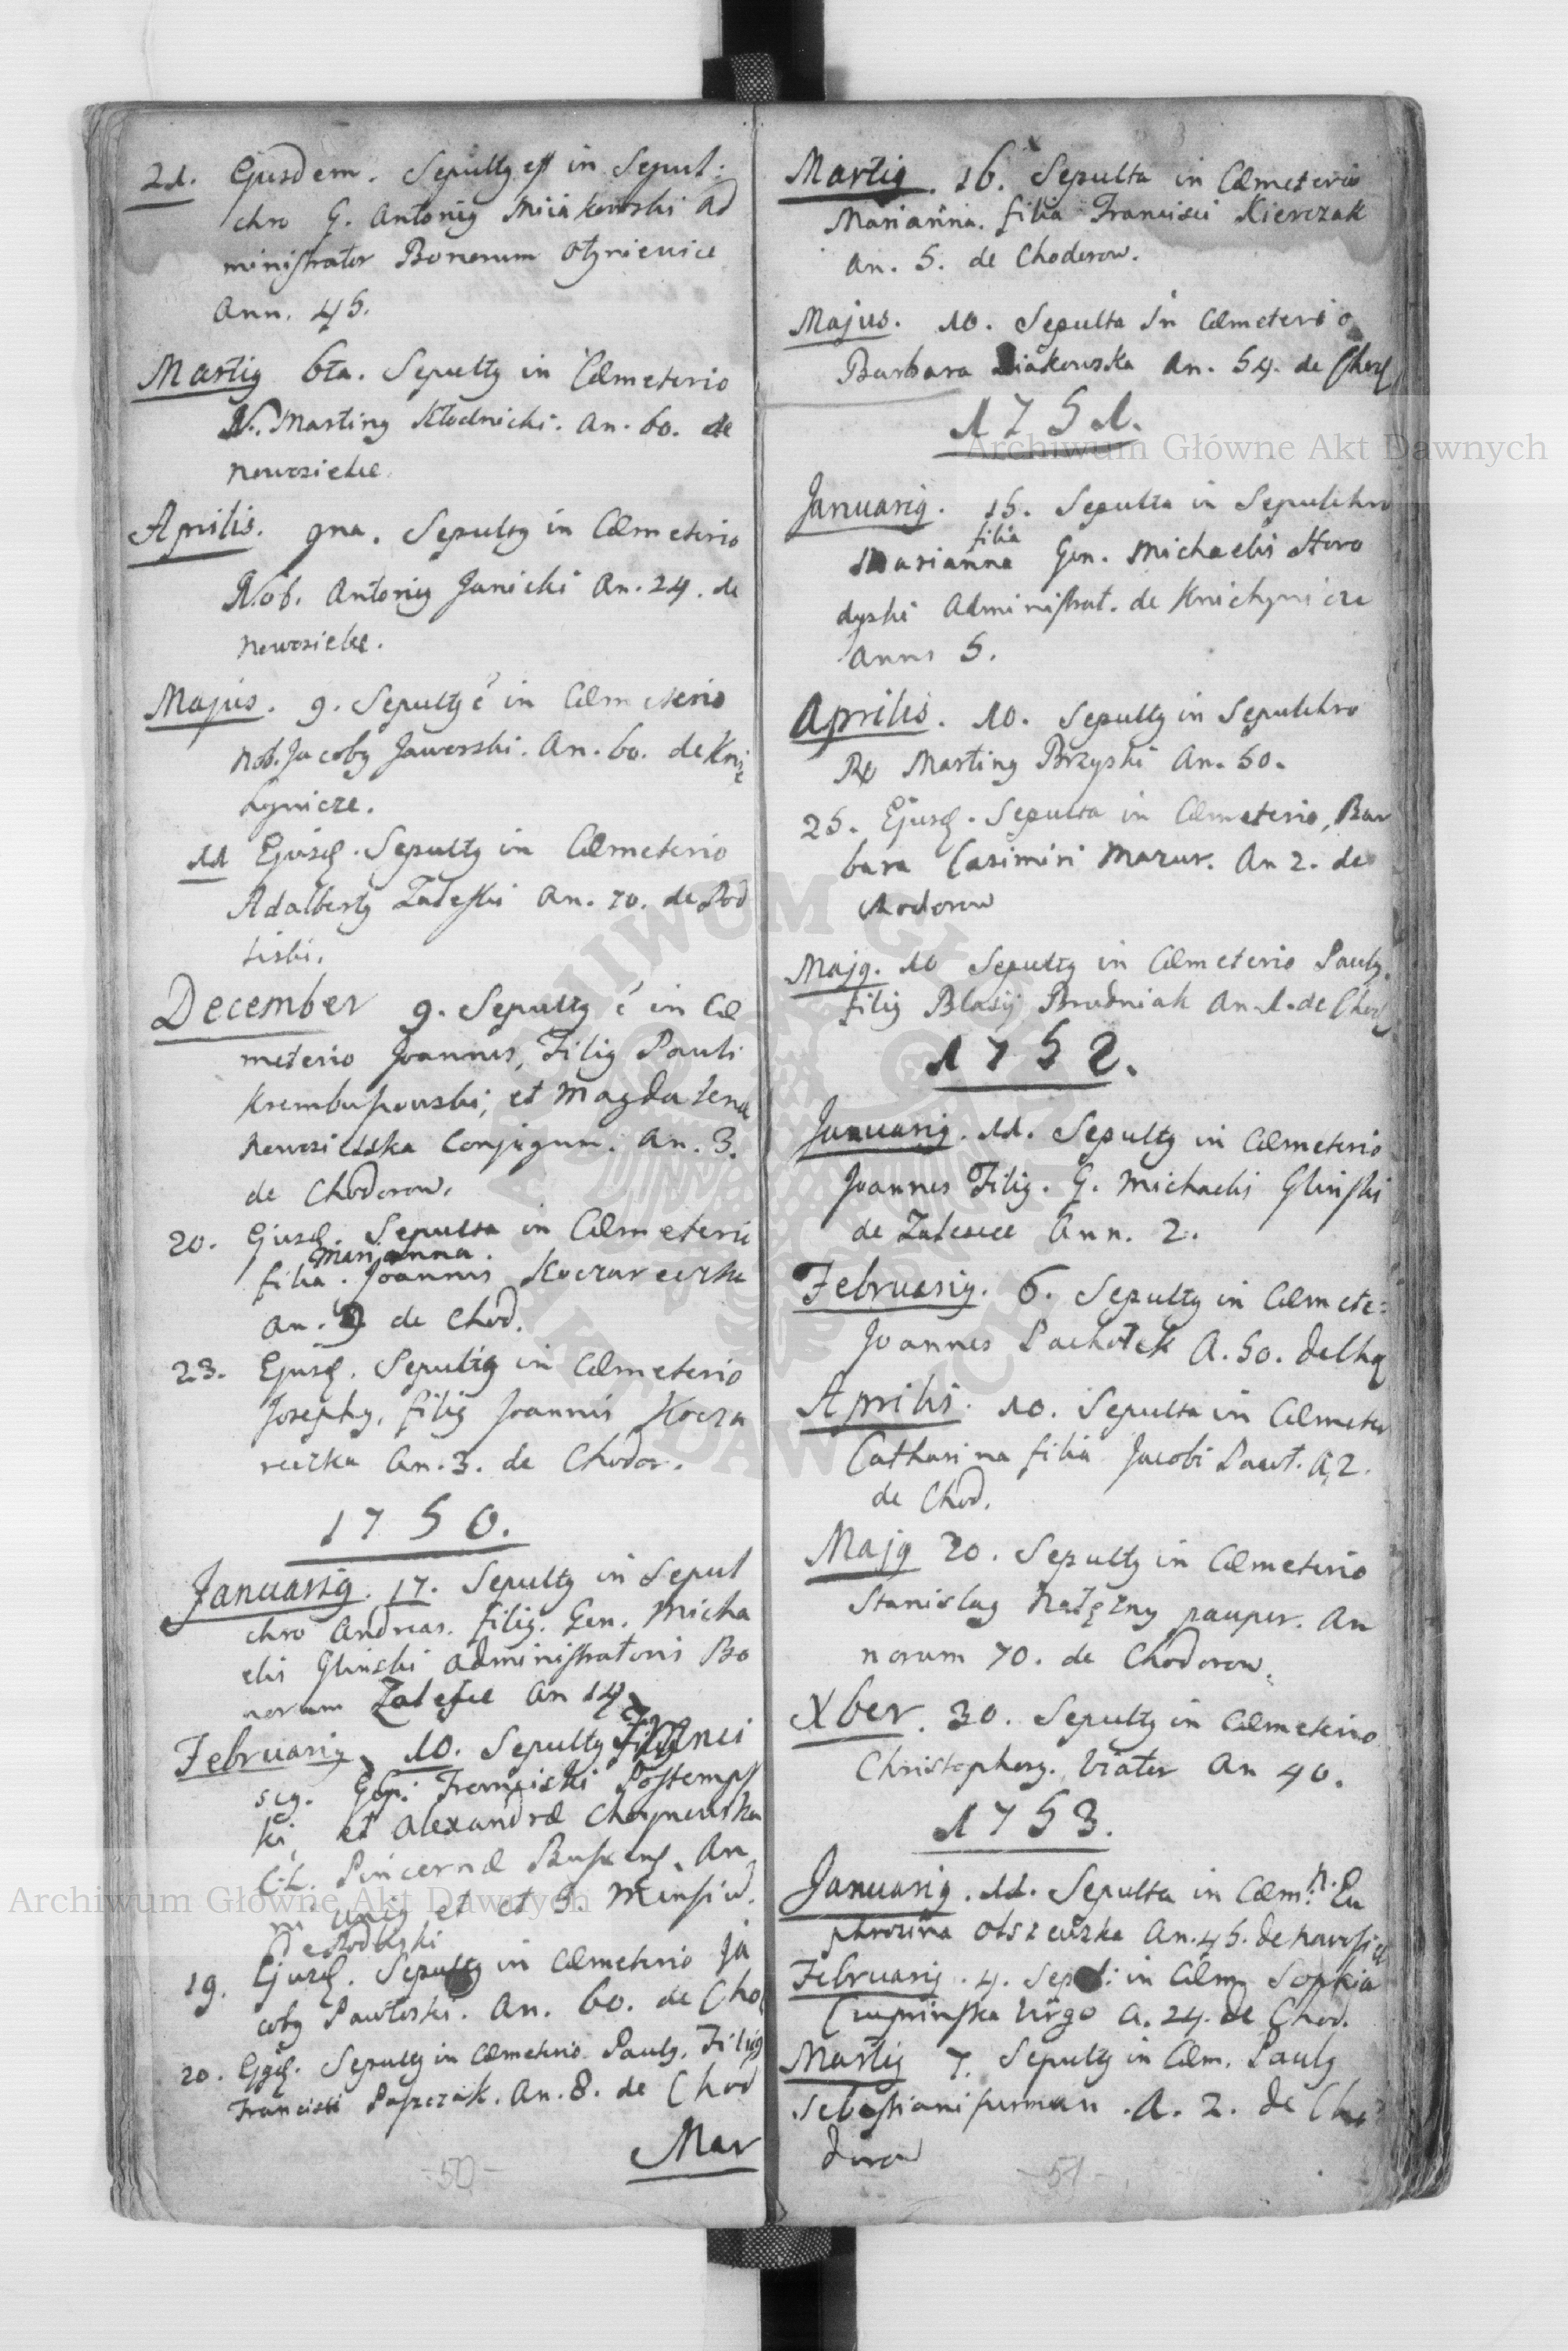 21. Ejusdem. Sepultg est in Sepul:
chro G. Antonig Miiakowski Ad
ministrator Bonorum Otynievice
Ann. 45.
Martig 6ta. Sepultg in Cæmeterio
N. Marting Kłodnicki. An. 60. de
Nowosielce
Aprilis. 9na. Sepultg in Cæmeterio
Nob. Antonig Janicki An. 24. de
Nowosielce.
Majus. 9. Sepultg é in Cæmeterio
Nob. Jacobg Jaworski. An. 60. de Kni
hynicze.
11 Ejusd. Sepultg in Cæmeterio
Adalbertg Zaleski An. 70. de Pod
liski.
December 9. Sepultg é in Cæ
meterio Joannes, Filig Pauli
et Magdalena
Nowosielska Conjugum. An. 3.
de Chodorow.
20. Ejusd. Sepulta in Cæmeterii
Marianna.
filia. Joannis
An. de Chod.
23. Ejusd. Sepultg in Cæmeterio
Josephg, filig Joannis Kocza
reczka An. 3. de Chodor.
1750.
Januarig. 17. Sepultg in Sepul
chro Andreas. filig. Gen. Micha
elis Glinski Administratoris Bo
norum Zalesce An 14
Februarig 10. Sepultg Franci
scg. Franciski Postemps
ki, et Alexandræ Choynewska
C.L. Pincernæ An
ni unig et et 3. Mensiu.
de Podliski
19. Ejusd. Sepultg in Cæmeterio Ja
cobg Pawloski. An. 60. de Cho
20. Ejgd. Sepultg in Cæmeterio Paulg. Filig
Francisci Paszczak. An. 8. de Chod
Mar
-50-
Martig. 16. Sepulta in Cæmeterio
Marianna. filia Francisci Kierczak
An. 5. de Chodorow.
Majus. 10. Sepulta in Cæmeterio
Barbara An. 54. de Chod
1751.
Januarig. 15. Sepulta in Sepulchro
filia
Marianna Gen. Michaelis Horo
dyski Administrat. de Knichynicze
Anns 5.
Aprilis. 10. Sepultg in Sepulchro
Marting Brzyski An. 50.
25. Ejusd. Sepulta in Cæmeterio, Bar
bara Casimiri Mazur. An 2. de
Chodorow
Majg. 10 Sepultg in Cæmeterio Paulg.
filig Blasij Brudniak An. 1. de Chod
1752.
Januarig. 11. Sepultg in Cæmeterio
Joannes Filig. G. Michaelis Glinski
de Zalesce Ann. 2.
Februarig. 6. Sepultg in Cæmete:
Joannes Pachołek A. 50. de Chd
Aprilis. 10. Sepulta in Cæmeter
Catharina filia Jacobi Pawt. A, 2.
de Chod.
Majg 20. Sepultg in Cæmeterio
Stanislag Nałężny pauper. An
norum 70. de Chodorow.
Xber. 30. Sepultg in Cæmeterio
Christopherg. Viator An 40.
1753.
Januarig. 11. Sepulta in Cæm: N. Eu
phrozina Olszewska An. 45. de Nowosiel
Februarig. 4. in Cæm Sophia
Virgo A. 24. de Chod.
Martig 7. Sepultg in Cæm. Paulg
Sebastiani furman. A. 2. de Cho
dorow
-51-
Archiwum Główne Akt Dawnych
Archiwum Główne Akt Dawnych
ARCHIWUM GŁÓWNE AKT DAWNYCH